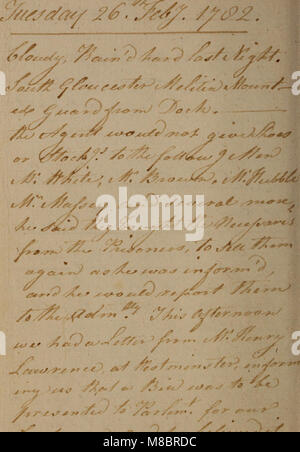 Tuesday 26th Feby. 1782.
Cloudy, Rain'd hard last Night.
South Gloucester Militia Mount-
ed Guard from Dock.
the Agent would not give Shoes
or Stockgs. to the follow'g Men
Mr. White, Mr. Brown, Mr.
Mr. and several more,
he said they bought the
from the Prisoners, to sell them
again as he was inform'd,
and he would report them
to the Admty. This afternoon
we had a Letter from Mr. Henry
Lawrence, at Westminster, inform
ing us that a Bill was to be
presented to Parlemt. for our
alamy
Image ID: M8BRDC
www.alamy.com